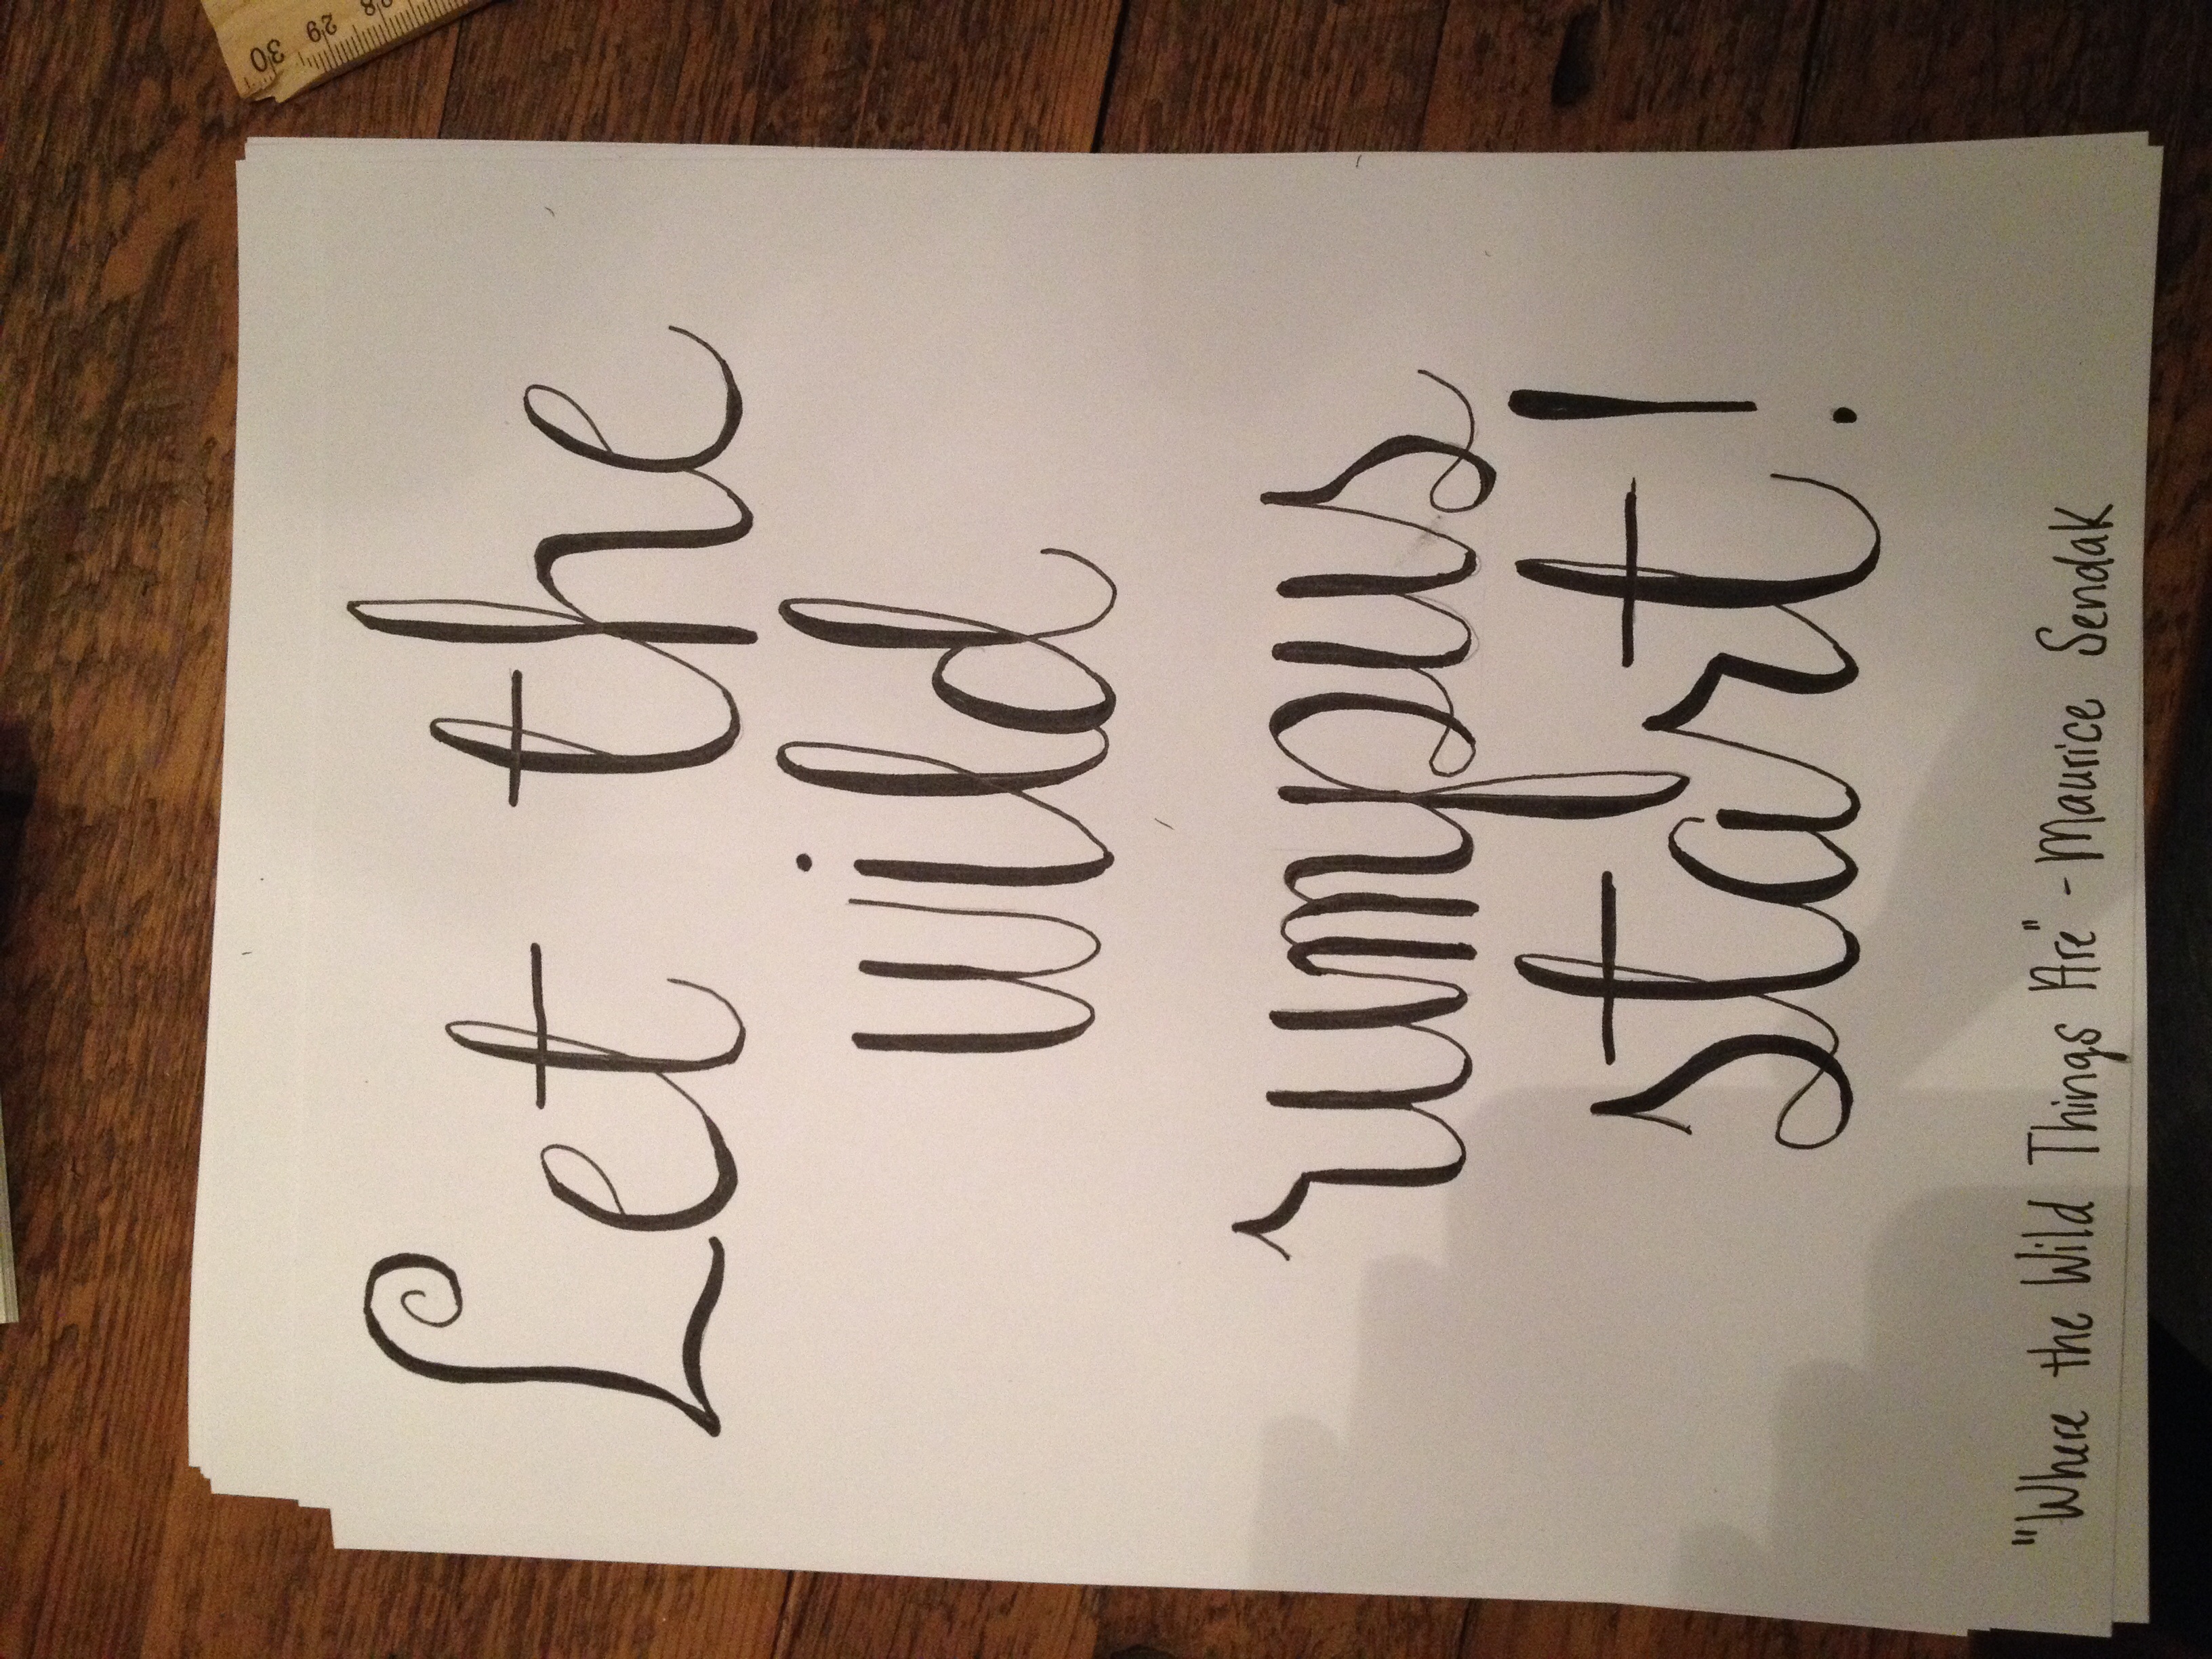 Let the
wild
rumpus
start!
"Where the Wild Things Are" - Maurice Sendak
30 29 28